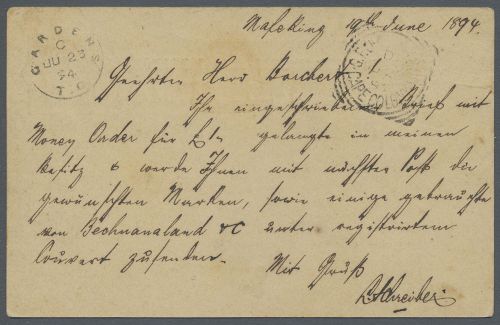 Mafeking 19th June 1894.
GARDENS
C
JU 23
94
T.C
CAPE COLONY
Geehrter Herr Borchert
Ihr eingeschriebenen Brief mit
Money Order für £1- gelangte in meinen
Besitz & werde Ihnen mit nächster Post die
gewünschten Marken, sowie einige gebrauchte
von Bechuanaland &C unter registrirtem
Couvert zusenden.
Mit Gruß
Schreiber